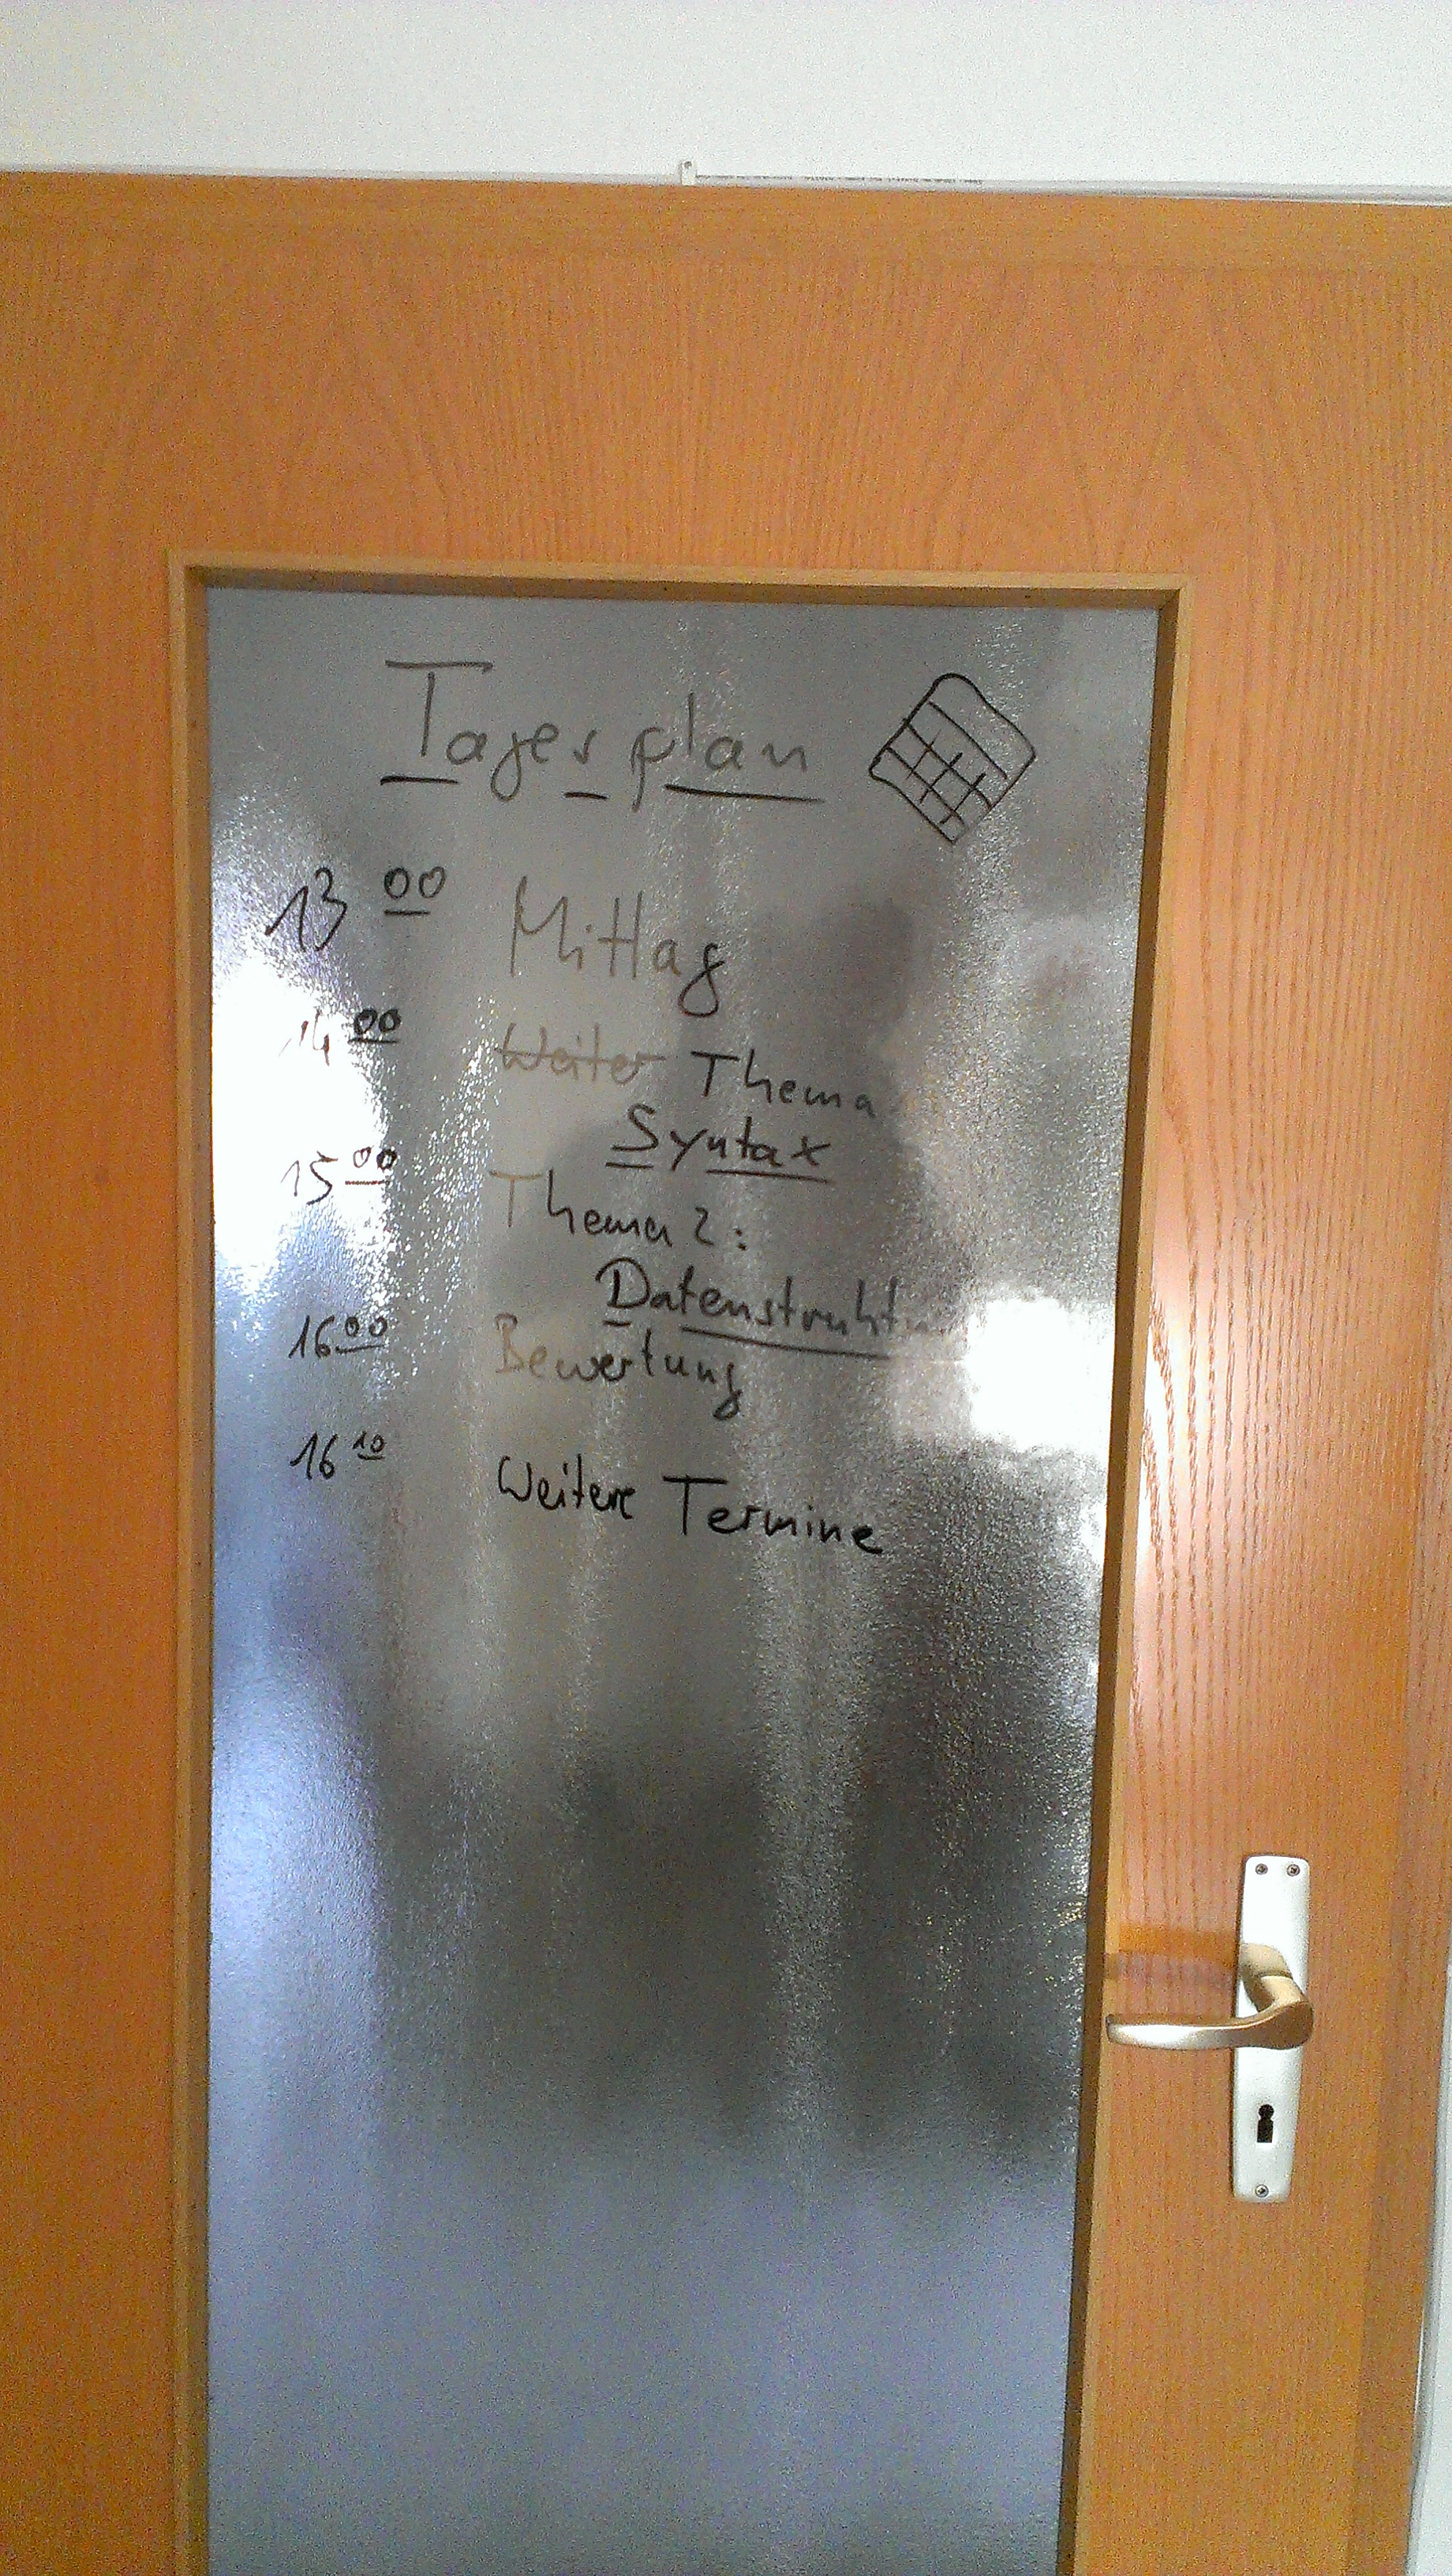 Tagesplan
13 00 Mittag
14 00 Weiter Thema
Syntax
15 00 Thema 2:
Datenstrukt
16 00 Bewertung
16 10 Weitere Termine